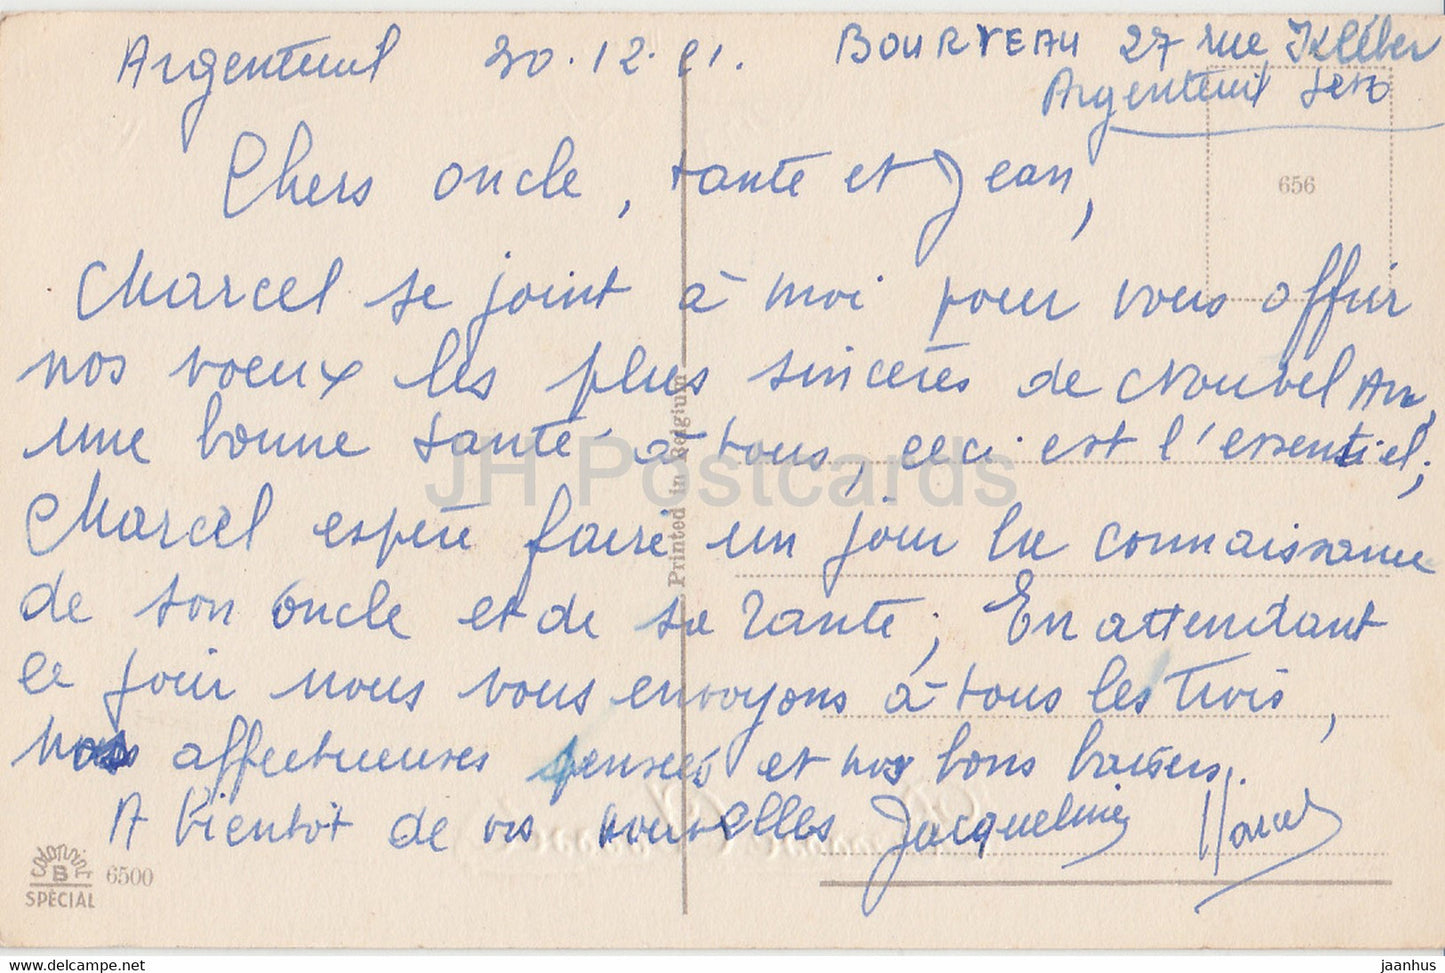 Argenteuil 30.12.61. BOURVEAU 27 rue Kléber
Argenteuil S et O
656
Chers oncle, tante et Jean,
Marcel se joint à moi pour vous offrir
nos voeux les plus sincères de Nouvel An,
une bonne santé à tous, ceci est l'essentiel;
Marcel espère faire un jour la connaissance
de son oncle et de sa tante; En attendant
ce jour nous vous envoyons à tous les trois,
nos affectueuses pensées et nos bons baisers.
A bientôt de vos nouvelles Jacqueline Marcel
Printed in Belgium
colorprint
B
SPÉCIAL
6500
JH Postcards
www.delcampe.net
jaanhus